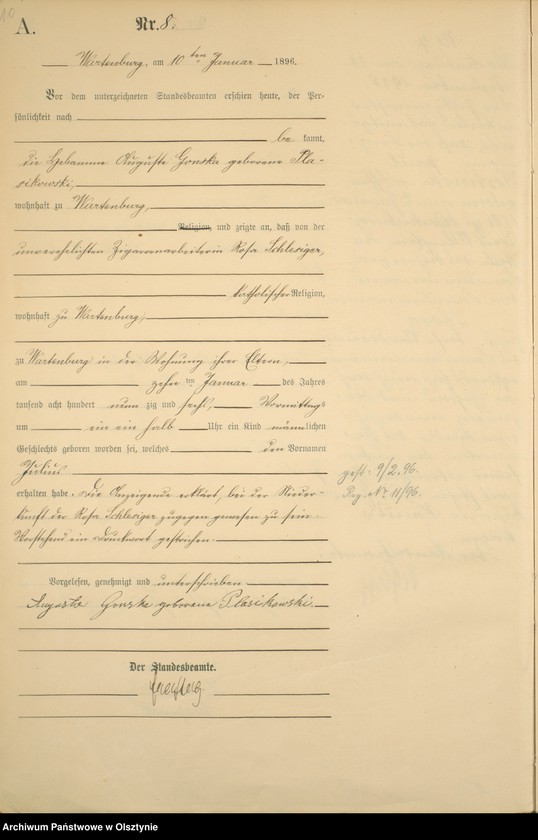 10
A.
Nr. 8.
Wartenburg, am 10 ten Januar 1896.
Vor dem unterzeichneten Standesbeamten erschien heute, der Per-
sönlichkeit nach
be kannt,
die Hebamme Auguste Gonska geborene Pla-
sikowski,
wohnhaft zu Wartenburg,
Religion, und zeigte an, daß von der
unverehelichten Zigarrenarbeiterin Rosa Schlesiger,
katholischer Religion,
wohnhaft zu Wartenburg,
zu Wartenburg in der Wohnung ihrer Eltern,
am zehn ten Januar des Jahres
tausend acht hundert neun zig und sechs, Vormittags
um ein ein halb Uhr ein Kind männlichen
Geschlechts geboren worden sei, welches den Vornamen
Julius
erhalten habe. Die Anzeigende erklärt, bei der Nieder-
kunft der Rosa Schlesiger zugegen gewesen zu sein.
Vorstehend ein Druckwort gestrichen.
gest. 9/2. 96.
Reg. Nr 11/96.
Vorgelesen, genehmigt und unterschrieben
Auguste Gonska geborene Plasikowski.
Der Standesbeamte.
Archiwum Państwowe w Olsztynie